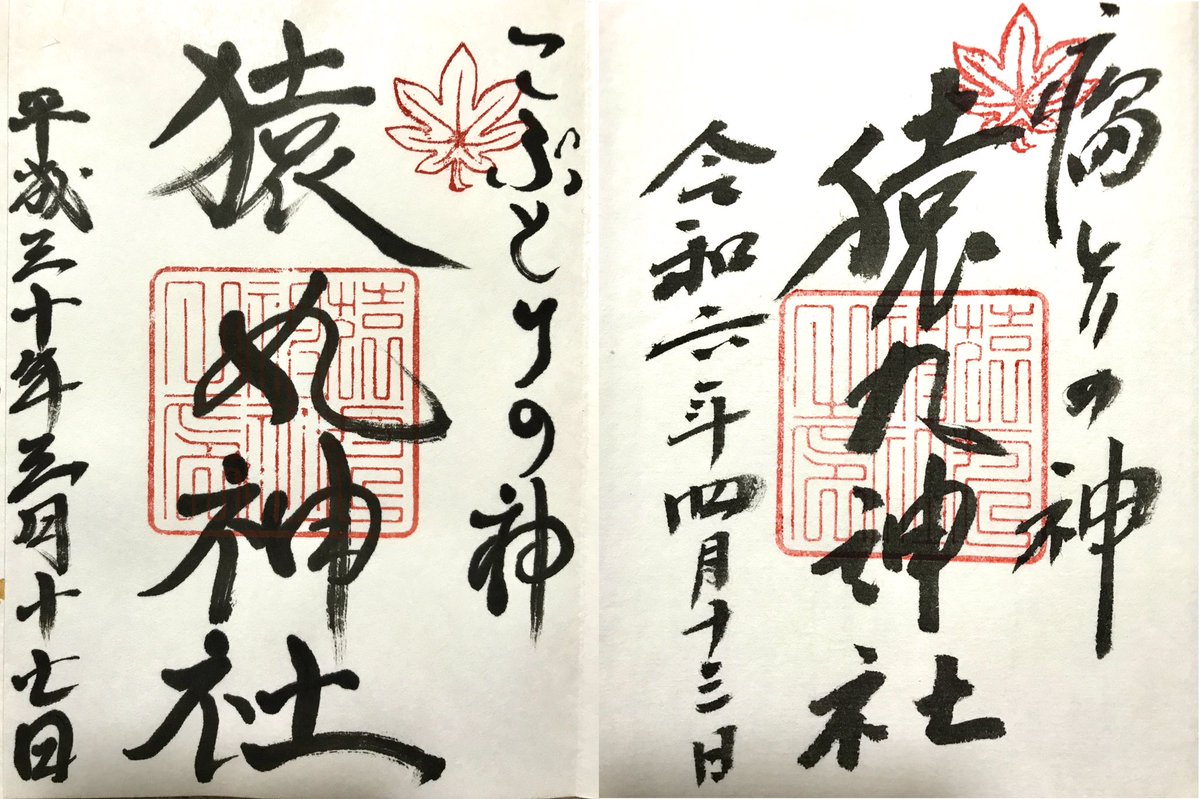 こぶとりの神
猿丸神社
平成三十年三月十七日
瘤とりの神
猿丸神社
令和六年四月十三日